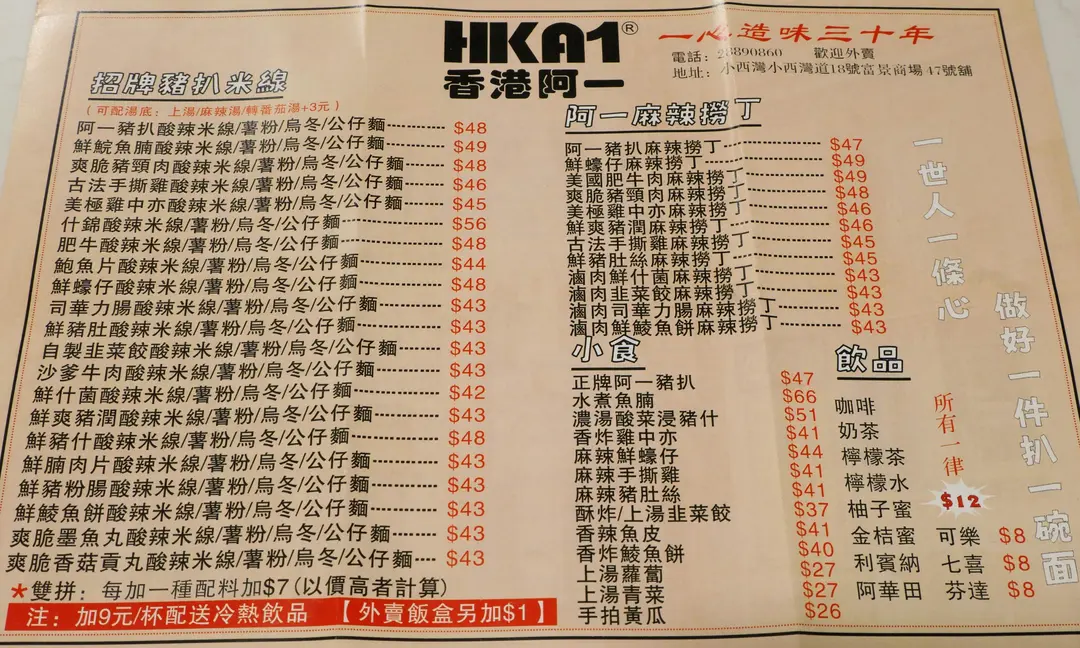 HKA1®
香港阿一
一心造味三十年
電話：28890860 歡迎外賣
地址：小西灣小西灣道18號富景商場47號舖
招牌豬扒米線
(可配湯底：上湯/麻辣湯/轉番茄湯+3元)
阿一豬扒酸辣米線/薯粉/烏冬/公仔麵 $48
鮮鯇魚腩酸辣米線/薯粉/烏冬/公仔麵 $49
爽脆豬頸肉酸辣米線/薯粉/烏冬/公仔麵 $48
古法手撕雞酸辣米線/薯粉/烏冬/公仔麵 $46
美極雞中亦酸辣米線/薯粉/烏冬/公仔麵 $45
什錦酸辣米線/薯粉/烏冬/公仔麵 $56
肥牛酸辣米線/薯粉/烏冬/公仔麵 $48
鮑魚片酸辣米線/薯粉/烏冬/公仔麵 $44
鮮蠔仔酸辣米線/薯粉/烏冬/公仔麵 $48
司華力腸酸辣米線/薯粉/烏冬/公仔麵 $43
鮮豬肚酸辣米線/薯粉/烏冬/公仔麵 $43
自製韭菜餃酸辣米線/薯粉/烏冬/公仔麵 $43
沙爹牛肉酸辣米線/薯粉/烏冬/公仔麵 $43
鮮什菌酸辣米線/薯粉/烏冬/公仔麵 $42
鮮爽豬潤酸辣米線/薯粉/烏冬/公仔麵 $43
鮮豬什酸辣米線/薯粉/烏冬/公仔麵 $48
鮮腩肉片酸辣米線/薯粉/烏冬/公仔麵 $43
鮮豬粉腸酸辣米線/薯粉/烏冬/公仔麵 $43
鮮鯪魚餅酸辣米線/薯粉/烏冬/公仔麵 $43
爽脆墨魚丸酸辣米線/薯粉/烏冬/公仔麵 $43
爽脆香菇貢丸酸辣米線/薯粉/烏冬/公仔麵 $43
*雙拼：每加一種配料加$7(以價高者計算)
注：加9元/杯配送冷熱飲品 【外賣飯盒另加$1】
阿一麻辣撈丁
阿一豬扒麻辣撈丁 $47
鮮蠔仔麻辣撈丁 $49
美國肥牛肉麻辣撈丁 $49
爽脆豬頸肉麻辣撈丁 $48
美極雞中亦麻辣撈丁 $46
鮮爽豬潤麻辣撈丁 $46
古法手撕雞麻辣撈丁 $45
鮮豬肚絲麻辣撈丁 $45
滷肉鮮什菌麻辣撈丁 $43
滷肉韭菜餃麻辣撈丁 $43
滷肉司華力腸麻辣撈丁 $43
滷肉鮮鯪魚餅麻辣撈丁 $43
小食
正牌阿一豬扒 $47
水煮魚腩 $66
濃湯酸菜浸豬什 $51
香炸雞中亦 $41
麻辣鮮蠔仔 $44
麻辣手撕雞 $41
麻辣豬肚絲 $41
酥炸/上湯韭菜餃 $37
香辣魚皮 $41
香炸鯪魚餅 $40
上湯蘿蔔 $27
上湯青菜 $27
手拍黃瓜 $26
飲品
咖啡
奶茶
檸檬茶
檸檬水
柚子蜜
金桔蜜
利賓納
阿華田
所有一律
$12
可樂 $8
七喜 $8
芬達 $8
一世人一條心
做好一件扒一碗面